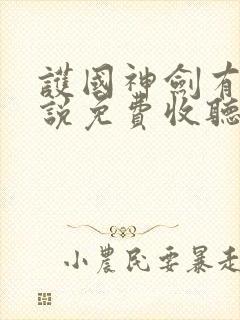 護國神劍有
說免費收聽
小農民要暴走